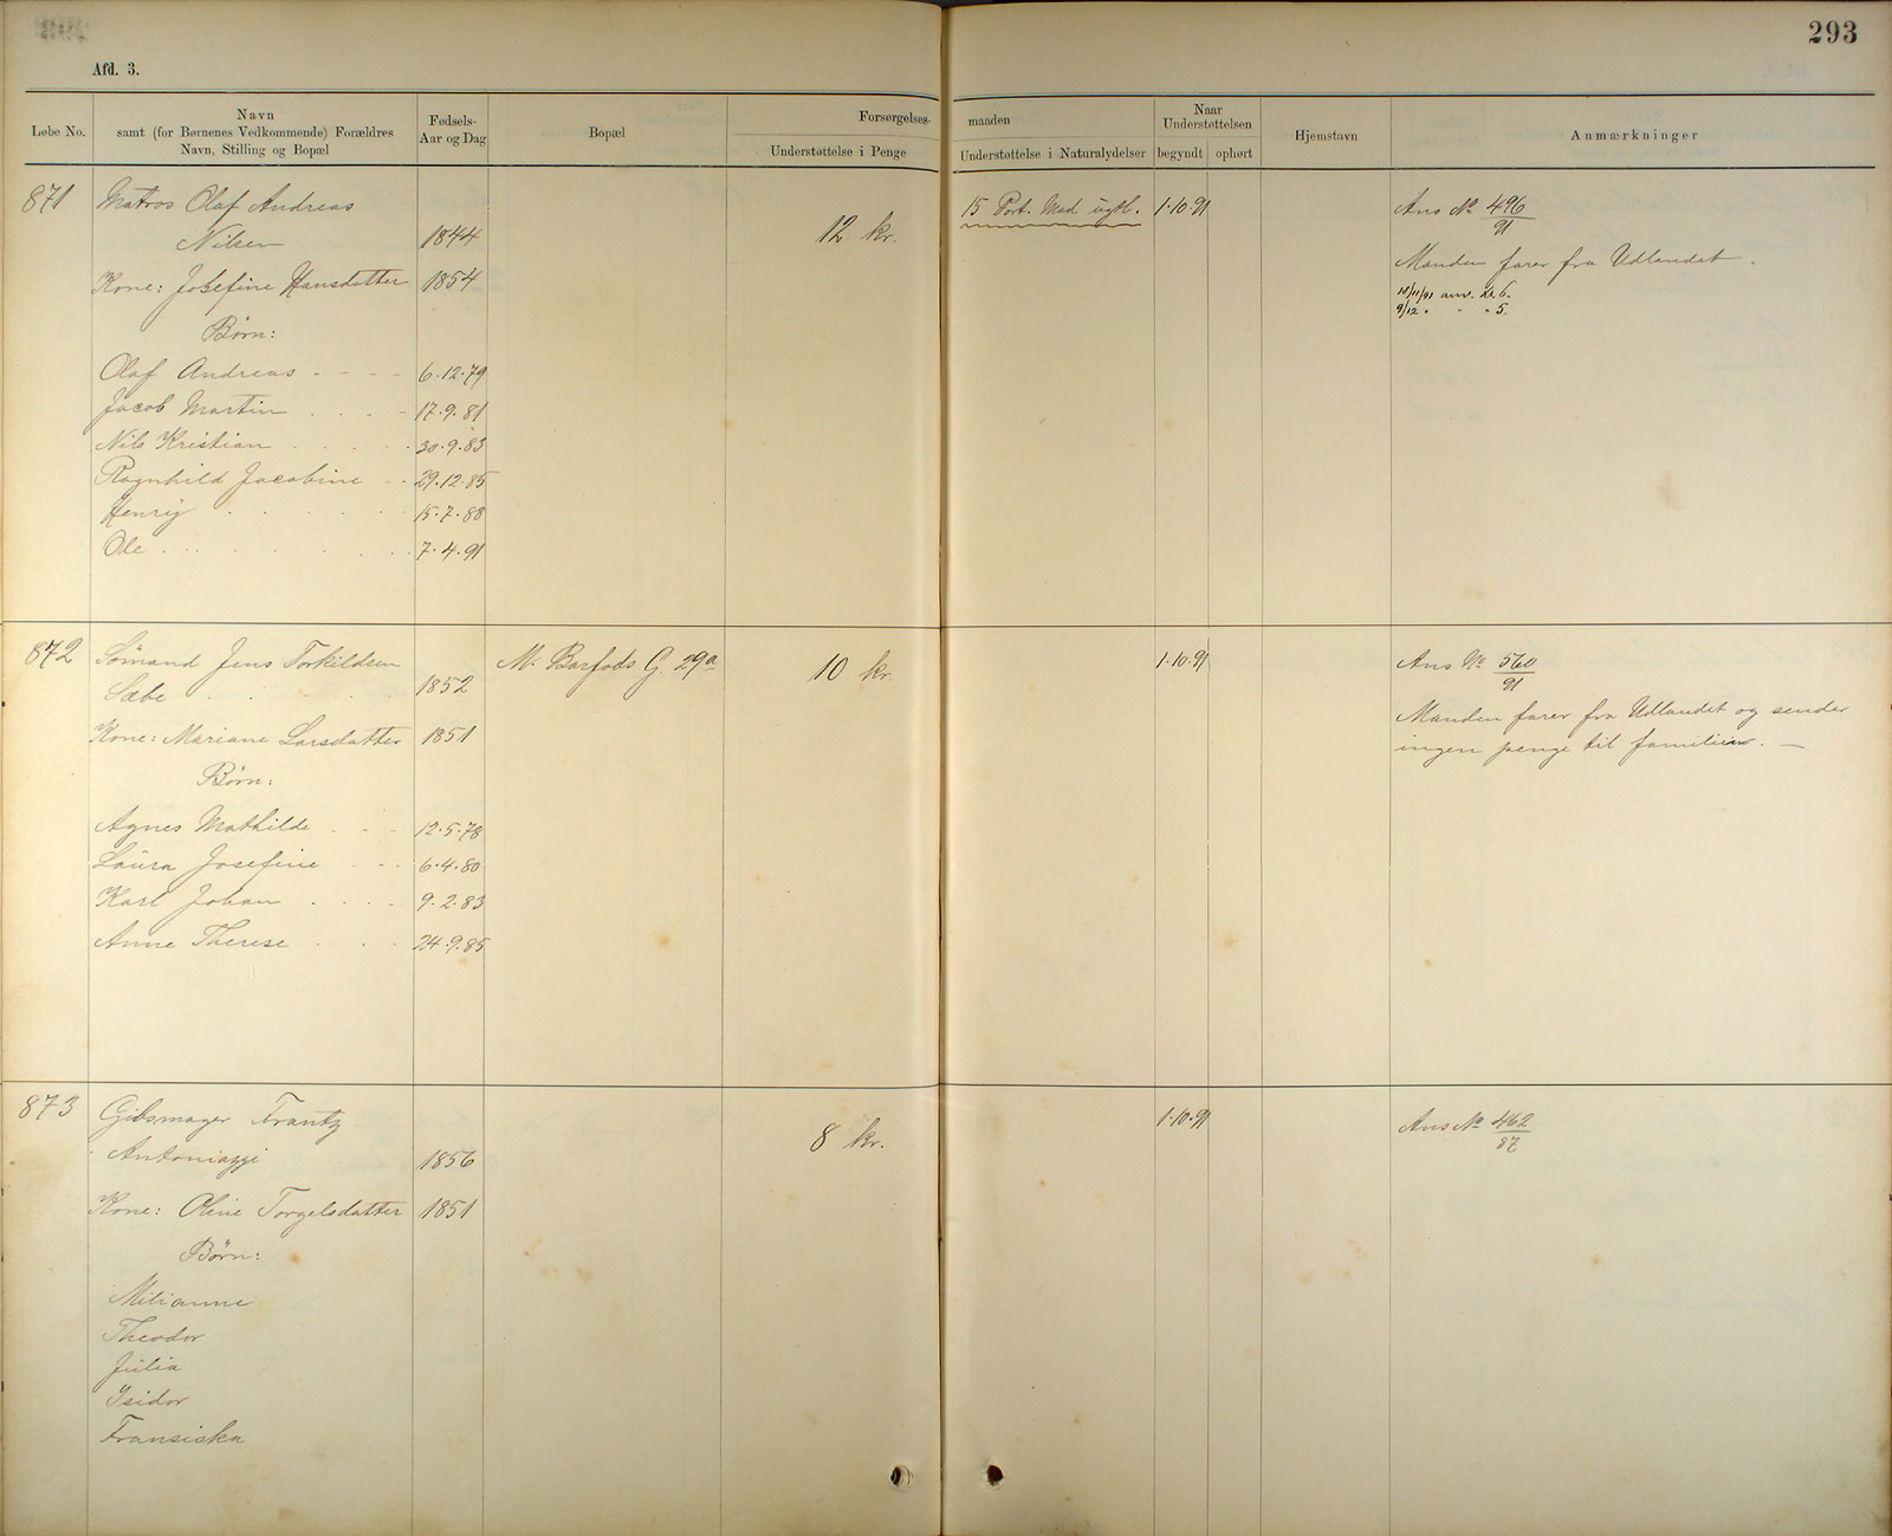 293
Afd. 3.
Løbe No.
Navn
samt (for Børnenes Vedkommende) Forældres
Navn, Stilling og Bopæl
Fødsels-
Aar og Dag
Bopæl
Forsørgelses-
maaden
Understøttelse i Penge
Understøttelse i Naturalydelser
Naar
Understøttelsen
begyndt
ophørt
Hjemstavn
Anmærkninger
871
Matros Olaf Andreas
Nilsen 1844
12 kr.
15 Port. Mad ugtl.
1.10.91
Ans No 496/91
Manden farer fra Udlandet.
Kone: Josefine Hansdatter 1854
18/11/91 anv. Kr. 6.
9/12 " " " 5.
Børn:
Olaf Andreas 6.12.79
Jacob Martin 17.9.81
Nils Kristian 30.9.83
Ragnhild Jacobine 29.12.85
Henry 15.7.88
Ole 7.4.91
872
Sömand Jens Torkildsen
Sæbe 1852
M. Barfods G. 29a
10 kr.
1.10.91
Ans No 560/91
Manden farer fra Udlandet og sender
ingen penge til familien. —
Kone: Mariane Larsdatter 1851
Børn:
Agnes Mathilde 12.5.78
Laura Josefine 6.4.80
Karl Johan 9.2.83
Anne Therese 24.9.85
873
Gibsmager Frantz
Antoniazzi 1856
8 kr.
1.10.91
Ans No 462/87
Kone: Oline Torgelsdatter 1851
Børn:
Milianne
Theodor
Julia
Isidor
Fransiska